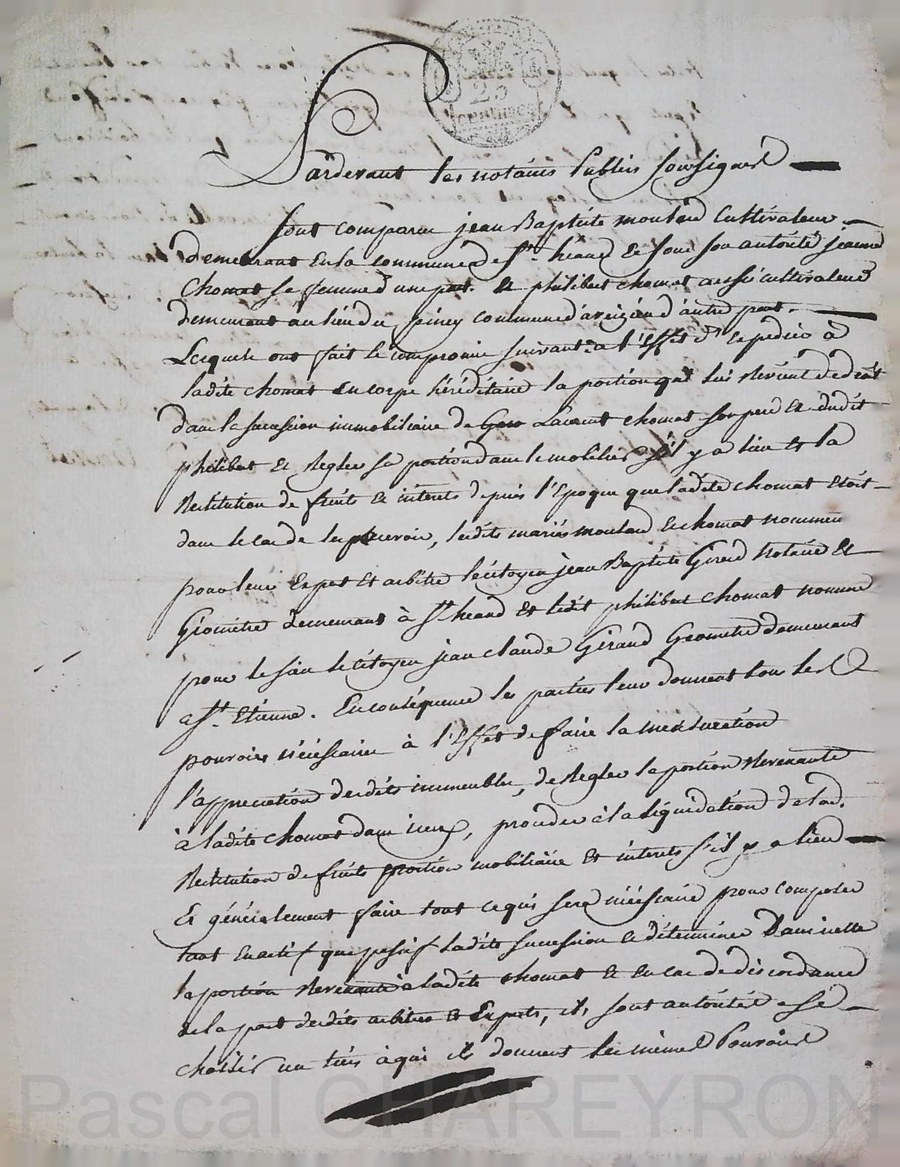 25
CENTIMES
Pardevant les notaires Publics soussignés
sont comparu jean Baptiste moulard Cultivateur
demeurant en la commune de St. héand & sous son autorité jeanne
Chomat sa femme d'une part. & philibert chomat aussi cultivateur
demeurant au lieu du piney commune d'aveizieu d'autre part.
Lesquels ont fait le compromis suivant: a l'Effet d'Expedier a
ladite chomat en corps héréditaire la portion qui lui Revient de droit
dans la succession immobiliaire de Laurent chomat son pere & dudit
philibert & Regler sa portion dans le mobilier s'il y a lieu & la
Restitution de fruits & interets depuis l'Epoque que ladite chomat Etoit
dans le cas de les percevoir, lesdits mariés moulard & chomat nomment
pour leur Expert et arbitre le citoyen jean Baptiste Girard Notaire &
Géometre demeurant à St. heand et ledit philibert chomat nomme
pour le sien le citoyen jean claude Girard Geometre demeurant
a St. Etienne. En conséquence les parties leur donnent tous les
pouvoirs nécessaires à l'Effet de faire la mensuration
l'appreciation desdits immeubles, de Regler la portion Revenante
à ladite chomat dans iceux, proceder à la liquidation de lad.
Restitution de fruits portion mobiliaire et interets s'il y a lieu
Et généralement faire tout ce qui sera nécessaire pour composer
tant en actif que passif ladite succession & déterminer Dans icelle
la portion Revenante à ladite chomat & en cas de discordance
de la part desdits arbitres & Experts, ils sont autorisés a se
choisir un tiers à qui ils donnent les mêmes Pouvoirs
Pascal CHAREYRON